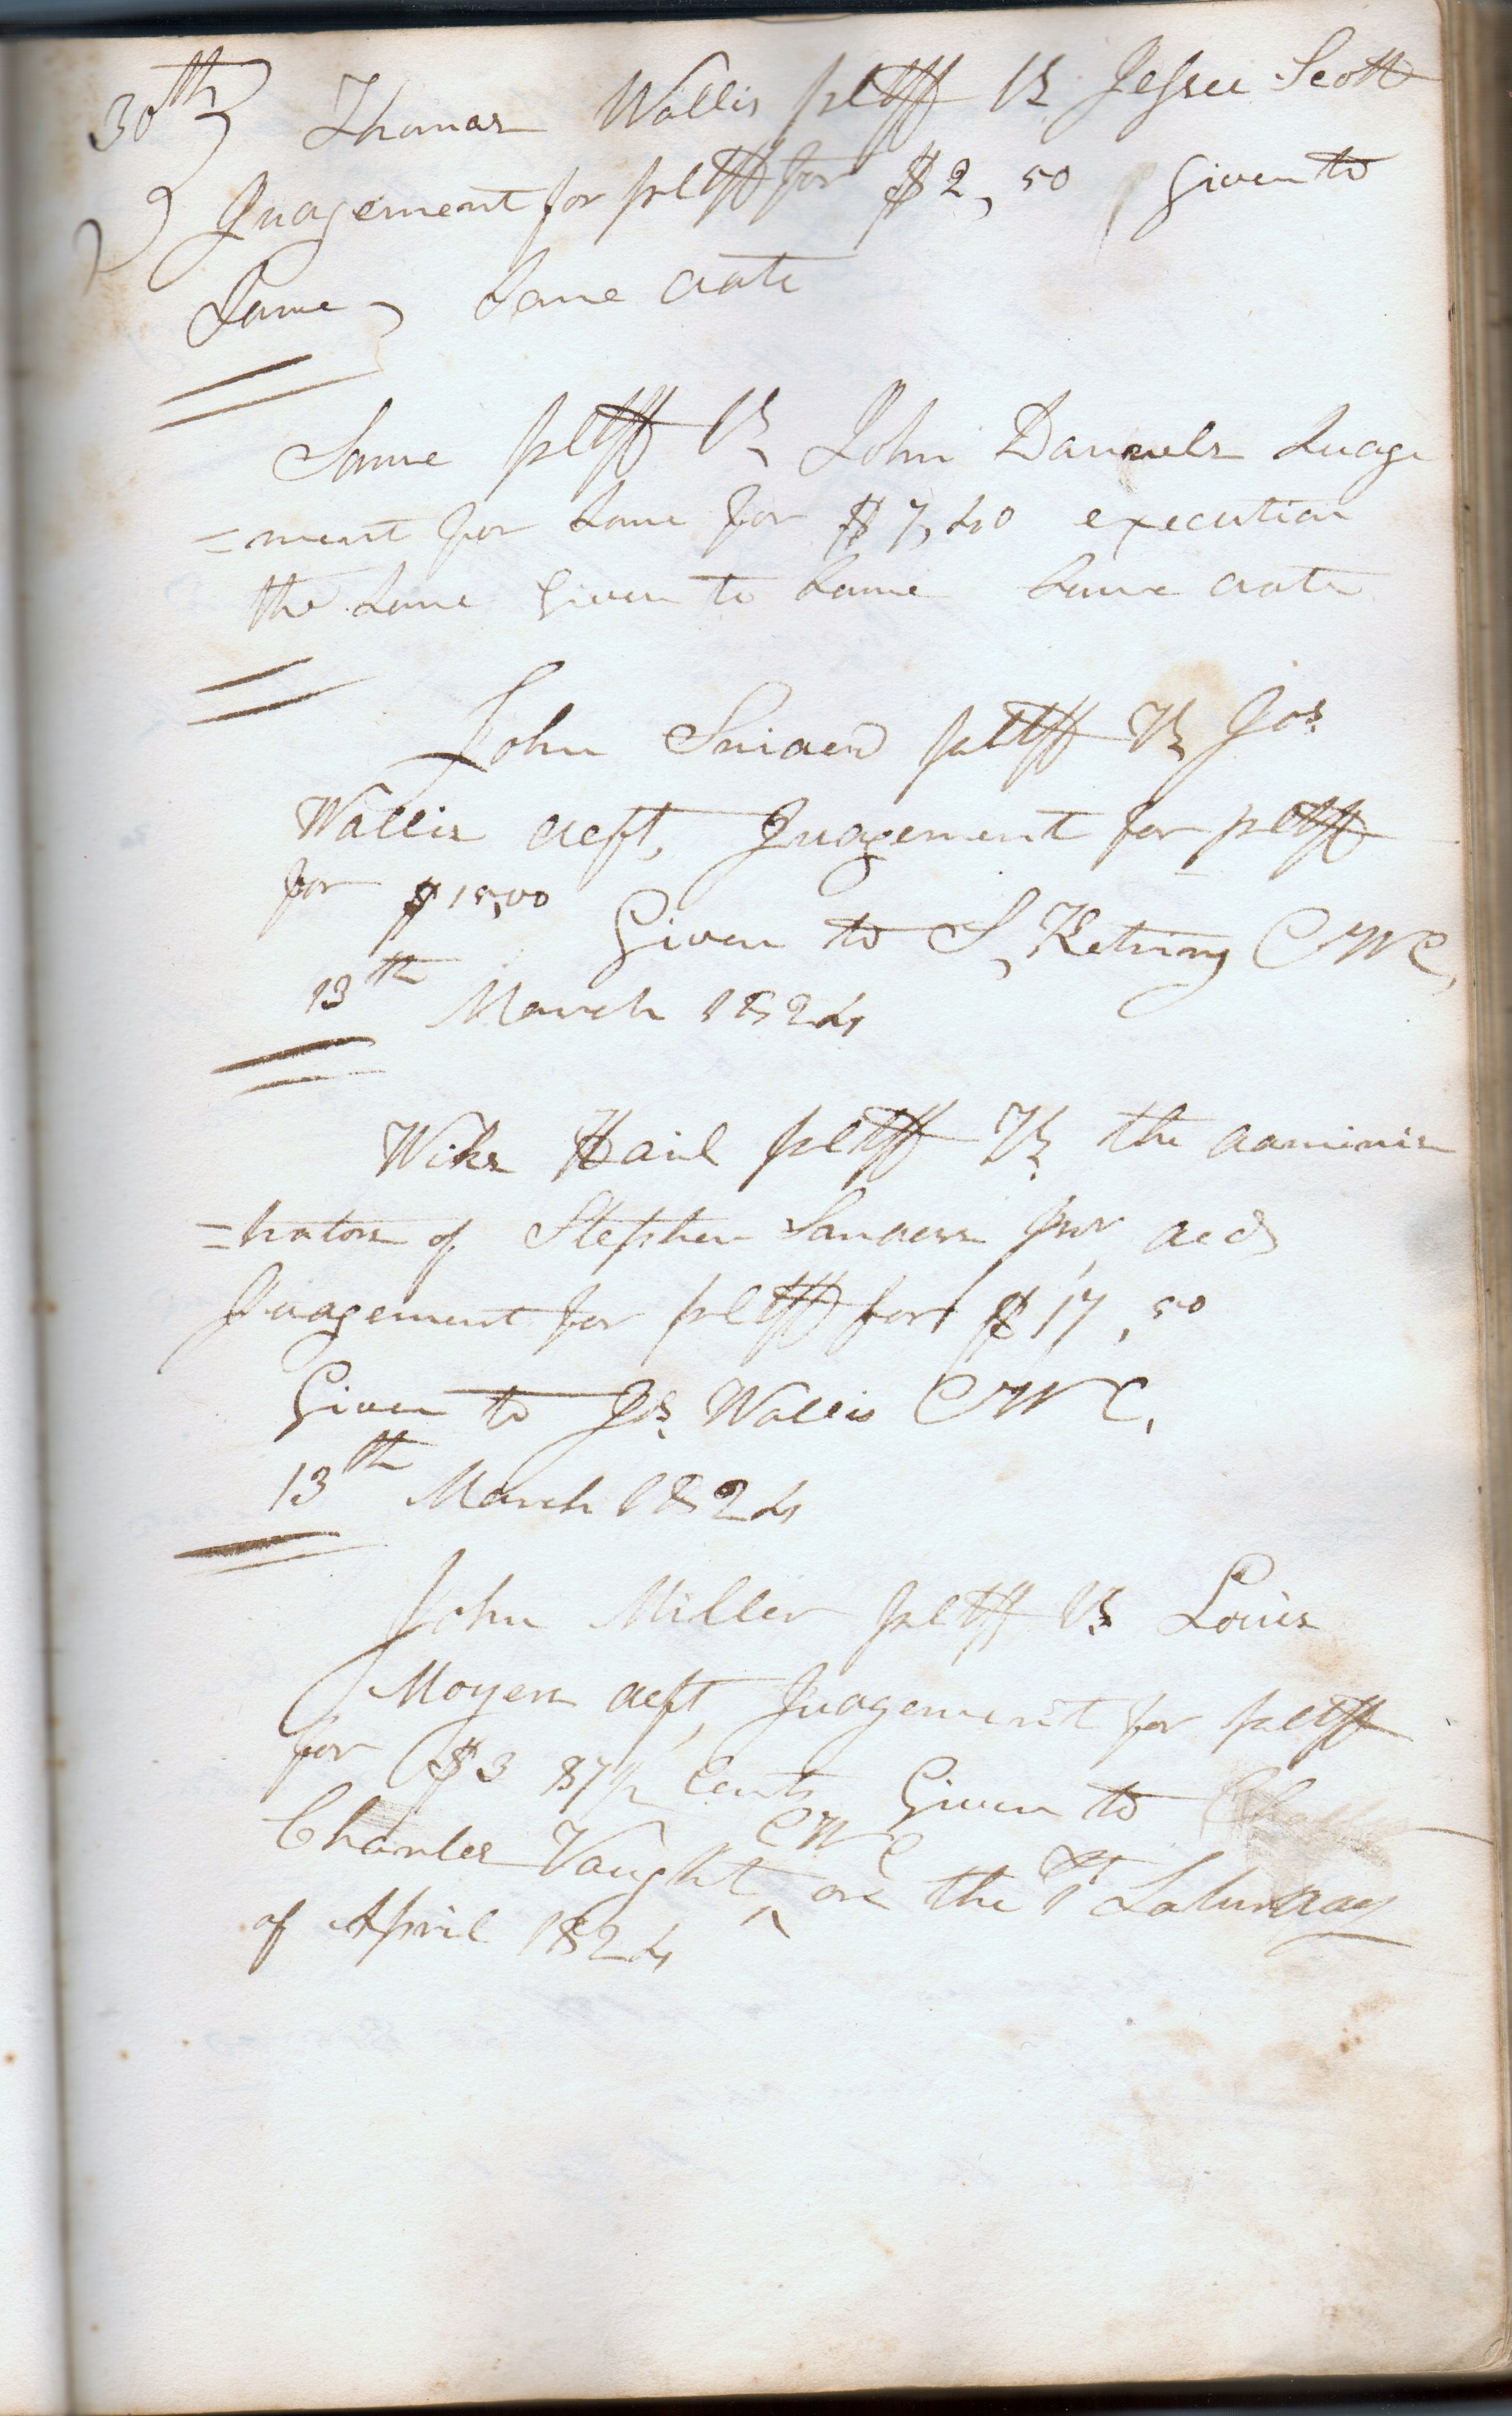 30th Thomas Wallis pltff Vs Jessee Scott
Judgement for pltff for $2,50 Given to
Same, Same date
Same pltff Vs John Daniels Judge
=ment for Same for $7,40 execution
the Same Given to Same Same date
John Snider pltff Vs Jos
Wallis deft, Judgement for pltff
for $15,00
Given to S, Ketring CWC,
13th March 1824
Wiks Hail pltff Vs the adminis
=trators of Stephen Sanders Jnr decd
Judgement for pltff for $17,50
Given to Jos Wallis CWC,
13th March 1824
John Miller pltff Vs Louis
Moyers deft, Judgement for pltff
for $3 87 1/2 Cents Given to
Charles Vaught ^ CWC on the 1st Saturday
of April 1824